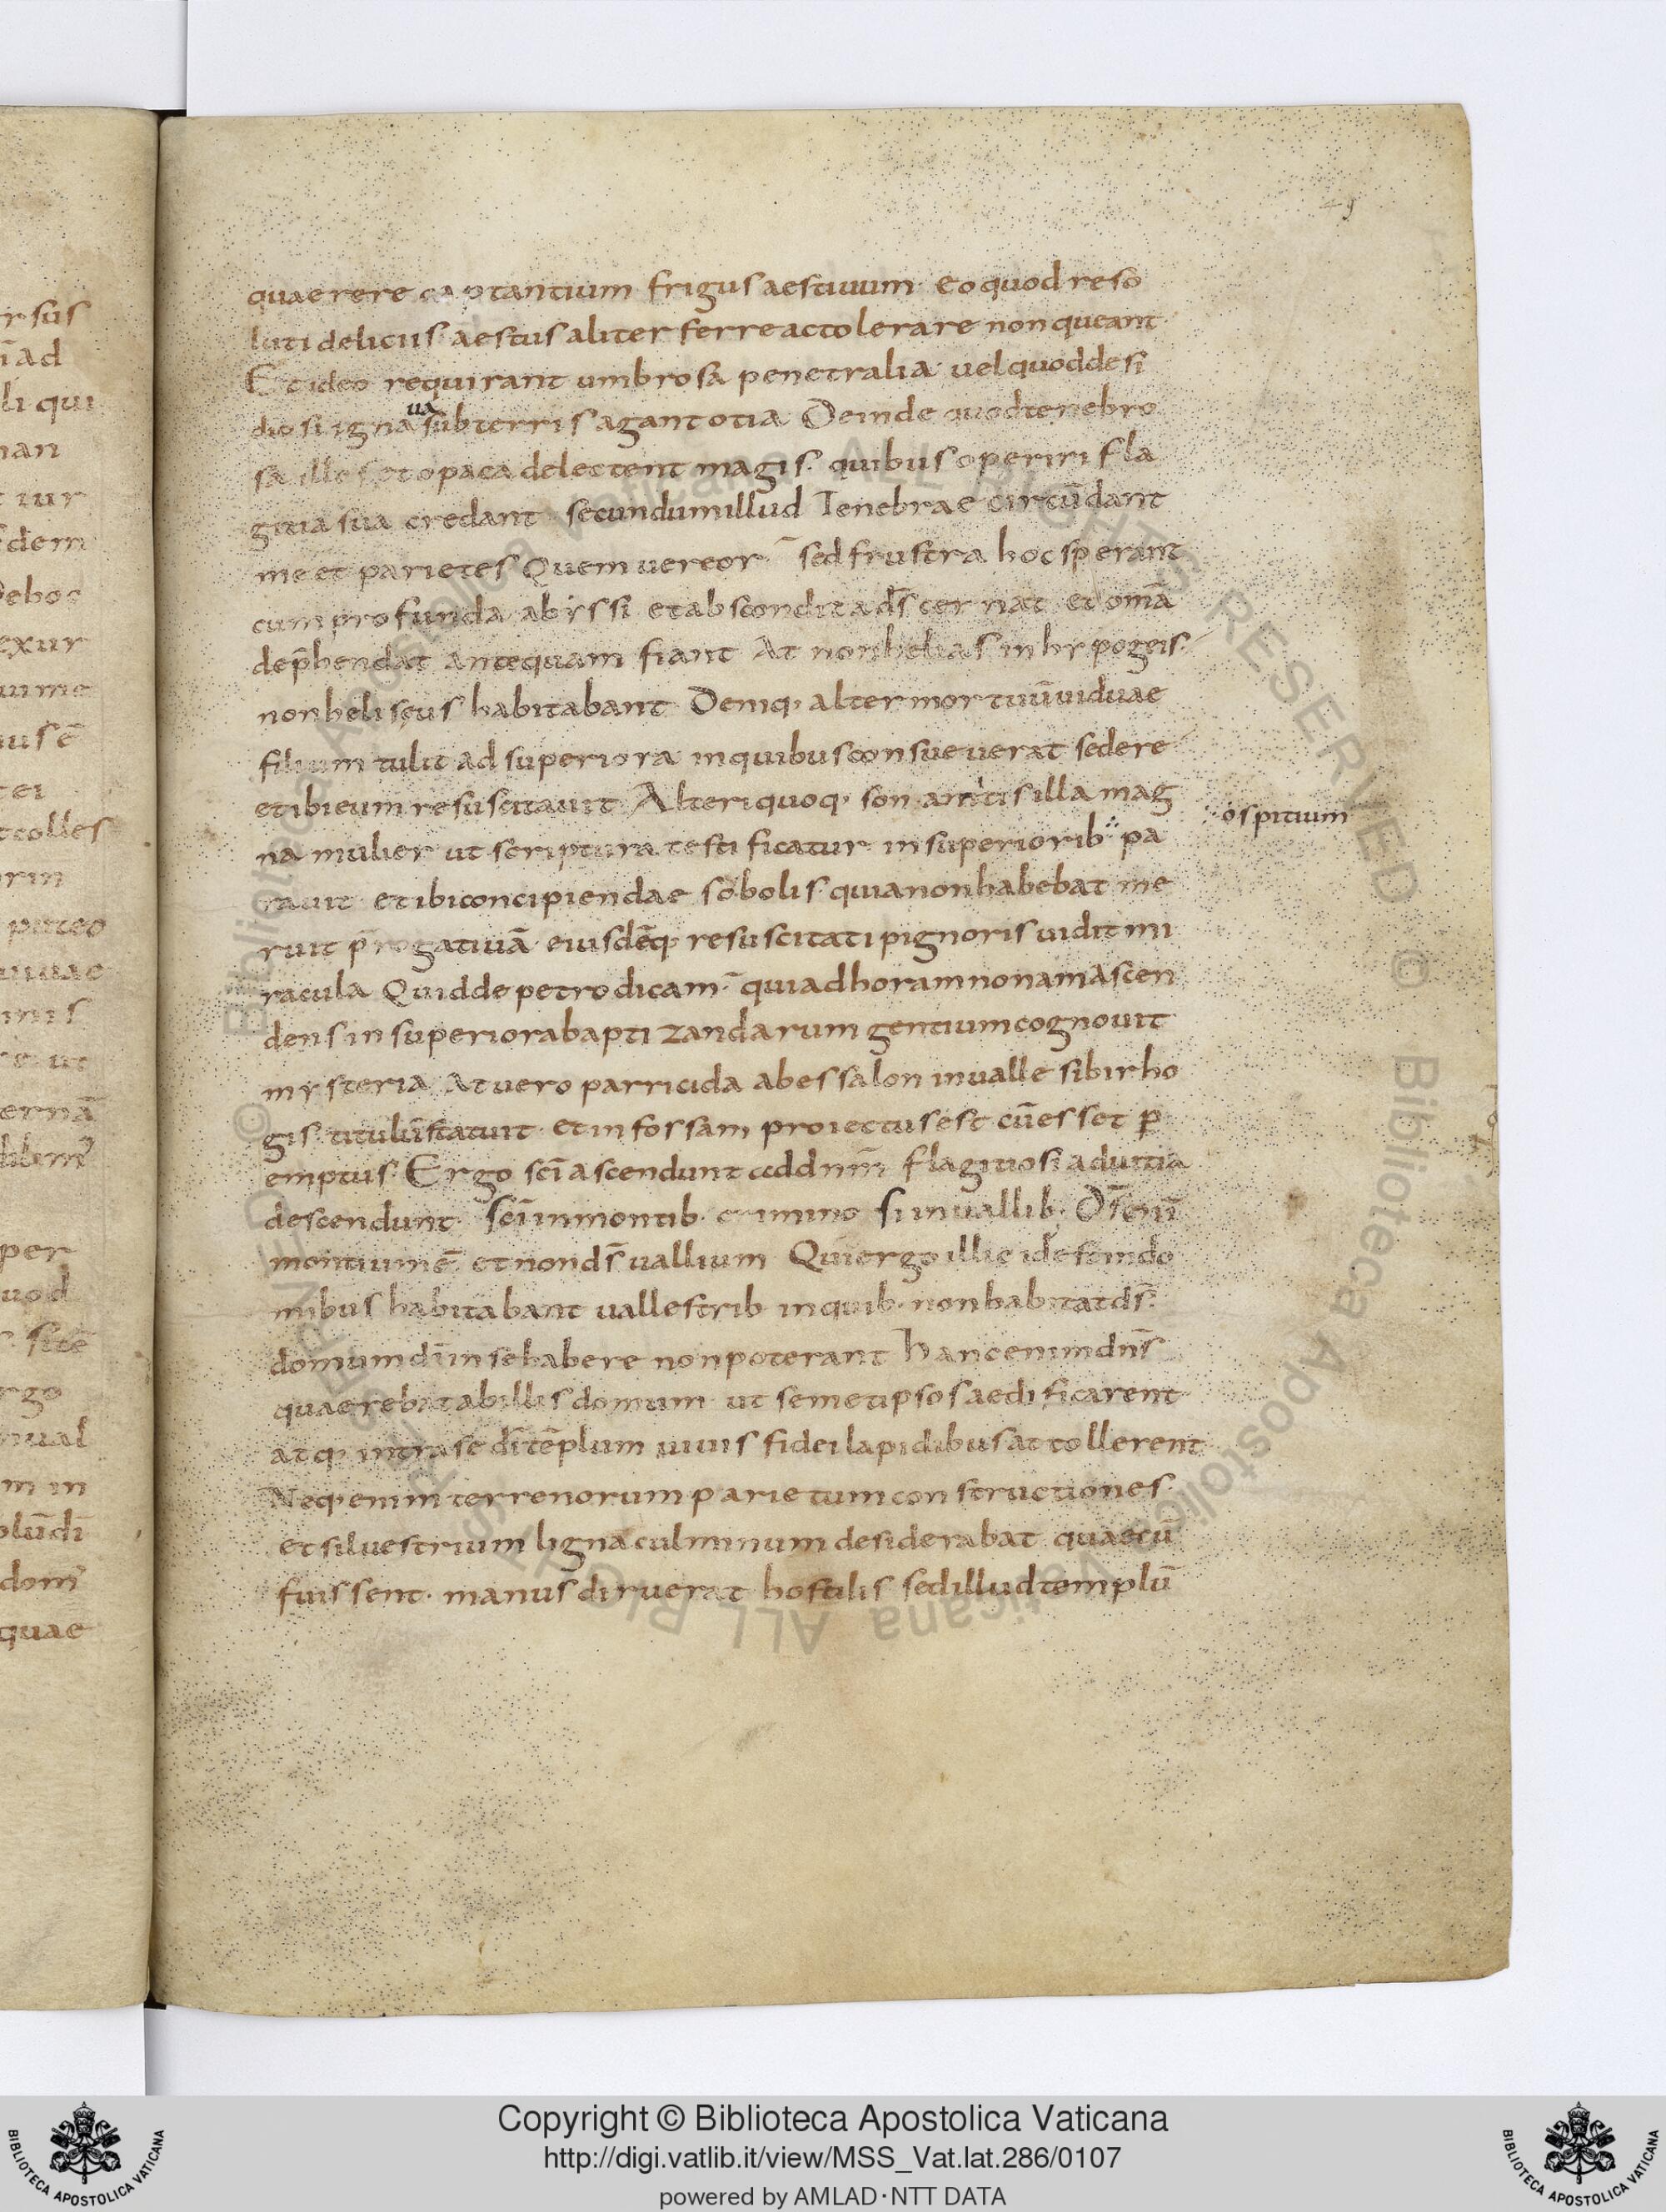 rsus
ī ad
li qui
nan
t iur
sdem
Dehoc
exur
uime
ius ē
tei
tcolles
orin
puteo
uiuae
inis
re ut
ernā
per
uod
sitē
rgo
nual
m in
olūdī
dom̄
quae
49
quaerere captantium frigus aestiuum· eo quod reso
luti deliciis aestus aliter ferre ac tolerare non queant·
Et ideo requirant umbrosa penetralia· uel quod desi
diosi igna sub terris agant otia Deinde quod tenebro
ua
sa illos et opaca delectent magis· quibus operiri fla
gitia sua credant· secundum illud Tenebrae circūdant
me et parietes Quem uereor sed frustra hoc sperant
cum profunda abyssi et abscondita d̄s cernat et om̄a
dep̄hendat antequam fiant At non helias in hypogeis·
non heliseus habitabant Deniq· alter mortuū uiduae
filium tulit ad superiora in quibus consueuerat sedere
et ibi eum resuscitauit· Alteri quoq· sonamitis illa mag
na mulier ut scriptura testificatur in superiorib·∴ pa
∴ ospitium
rauit et ibi concipiendae sobolis quia non habebat me
ruit p̄rogatiuā eiusdēq· resuscitati pignoris uidit mi
racula Quid de petro dicam qui ad horam nonam ascen
dens in superiora baptizandarum gentium cognouit
mysteria At uero parricida abessalon in ualle sibi rho
gis titulū statuit et in fossam proiectus est cū esset ꝑ
emptus· Ergo sc̄i ascendunt ad dn̄m flagitiosi ad uitia
descendunt· sc̄i in montib· criminosi in uallib· D̄s enī
montium ē et non d̄s uallium Qui ergo illic id est in do
mibus habitabant uallestrib· in quib· non habitat d̄s·
domum dī in se habere non poterant Hanc enim dn̄s
quaerebat ab illis domum ut semetipsos aedificarent
atq· intra se dī tēplum uiuis fidei lapidibus attollerent
Neq· enim terrenorum parietum constructiones·
et siluestrium ligna culminum desiderabat quae cū
fuissent· manus diruerat hostilis sed illud templū
© Biblioteca Apostolica Vaticana ALL RIGHTS RESERVED © Biblioteca Apostolica Vaticana ALL RIGHTS RESERVED
Copyright © Biblioteca Apostolica Vaticana
http://digi.vatlib.it/view/MSS_Vat.lat.286/0107
powered by AMLAD·NTT DATA
BIBLIOTECA APOSTOLICA VATICANA
BIBLIOTECA APOSTOLICA VATICANA